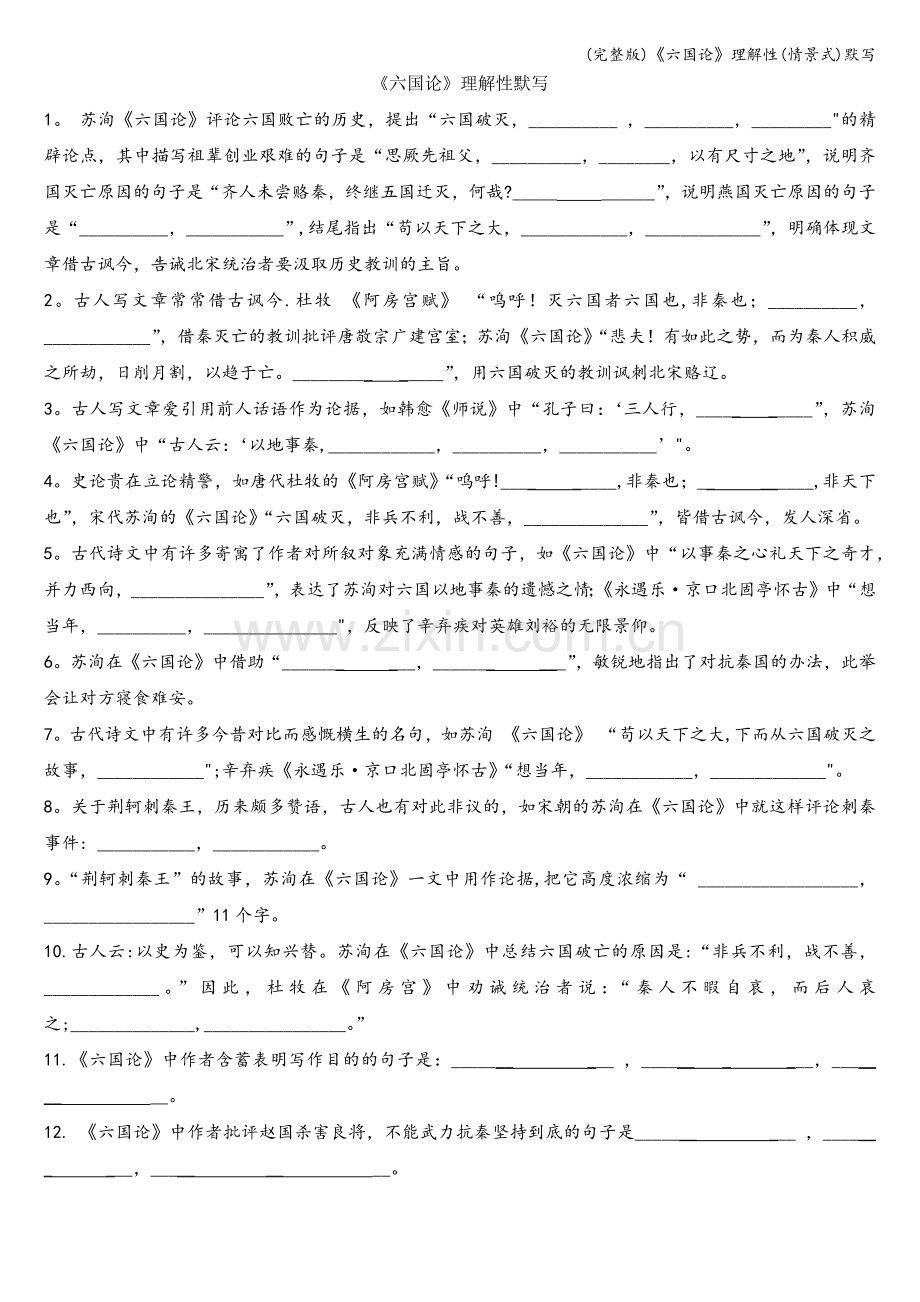 (完整版)《六国论》理解性(情景式)默写
《六国论》理解性默写
1。 苏洵《六国论》评论六国败亡的历史，提出“六国破灭，__________ ，__________，_________"的精
辟论点，其中描写祖辈创业艰难的句子是“思厥先祖父，__________，________，以有尺寸之地”，说明齐
国灭亡原因的句子是“齐人未尝赂秦，终继五国迁灭，何哉?________________”，说明燕国灭亡原因的句子
是“__________，___________”,结尾指出“苟以天下之大，____________，_____________”，明确体现文
章借古讽今，告诫北宋统治者要汲取历史教训的主旨。
2。古人写文章常常借古讽今.杜牧 《阿房宫赋》 “呜呼！灭六国者六国也,非秦也；__________，
____________”，借秦灭亡的教训批评唐敬宗广建宫室；苏洵《六国论》“悲夫！有如此之势，而为秦人积威
之所劫，日削月割，以趋于亡。_________________”，用六国破灭的教训讽刺北宋赂辽。
3。古人写文章爱引用前人话语作为论据，如韩愈《师说》中“孔子曰：‘三人行，_____________”，苏洵
《六国论》中“古人云：‘以地事秦,____________，__________，___________’"。
4。史论贵在立论精警，如唐代杜牧的《阿房宫赋》“呜呼!_____________,非秦也；_____________,非天下
也”，宋代苏洵的《六国论》“六国破灭，非兵不利，战不善，______________”，皆借古讽今，发人深省。
5。古代诗文中有许多寄寓了作者对所叙对象充满情感的句子，如《六国论》中“以事秦之心礼天下之奇才，
并力西向，_______________”，表达了苏洵对六国以地事秦的遗憾之情；《永遇乐·京口北固亭怀古》中“想
当年，__________，_______________"，反映了辛弃疾对英雄刘裕的无限景仰。
6。苏洵在《六国论》中借助“_______________，_______________”，敏锐地指出了对抗秦国的办法，此举
会让对方寝食难安。
7。古代诗文中有许多今昔对比而感慨横生的名句，如苏洵 《六国论》 “苟以天下之大,下而从六国破灭之
故事，____________";辛弃疾《永遇乐·京口北固亭怀古》“想当年，____________，_____________"。
8。关于荆轲刺秦王，历来颇多赞语，古人也有对此非议的，如宋朝的苏洵在《六国论》中就这样评论刺秦
事件：___________，____________。
9。“荆轲刺秦王”的故事，苏洵在《六国论》一文中用作论据,把它高度浓缩为“ __________________，
_________________”11个字。
10.古人云:以史为鉴，可以知兴替。苏洵在《六国论》中总结六国破亡的原因是:“非兵不利，战不善，
_____________。”因此，杜牧在《阿房宫》中劝诫统治者说：“秦人不暇自哀，而后人哀
之;______________,________________。”
11.《六国论》中作者含蓄表明写作目的的句子是：__________________ ，___________________，_____
______________。
12. 《六国论》中作者批评赵国杀害良将，不能武力抗秦坚持到底的句子是__________________ ，______
__________，___________________________。
www.zixin.com.cn